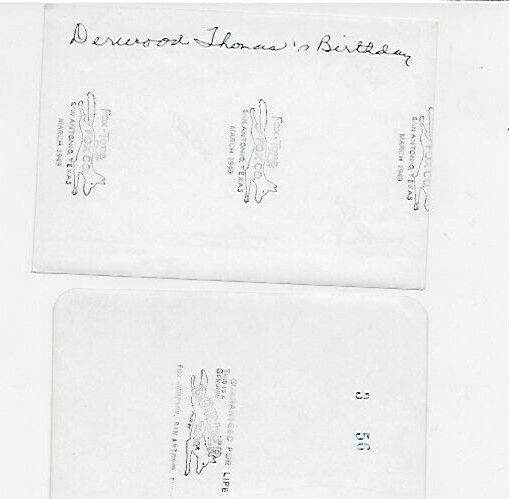 Derwood Thomas's Birthday
Fox-Tone
FOX CO.
SAN ANTONIO, TEXAS
MARCH 1949
Fox-Tone
FOX CO.
SAN ANTONIO, TEXAS
MARCH 1949
FOX CO.
SAN ANTONIO, TEXAS
GUARANTEED FOR LIFE
THIS IS A
GENUINE
BORDER
FOX COMPANY, SAN ANTONIO,
3 56